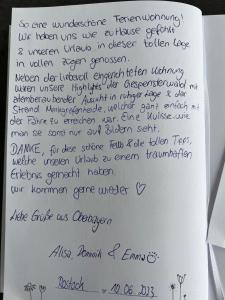 So eine wunderschöne Ferienwohnung!
Wir haben uns wie zu Hause gefühlt
& unseren Urlaub in dieser tollen Lage
in vollen Zügen genossen.
Neben der liebevoll eingerichteten Wohnung
waren unsere Highlights der Gespensterwald mit
atemberaubender Aussicht in ruhiger Lage & der
Strand Markgrafenheide, welcher ganz einfach mit
der Fähre zu erreichen war. Eine Kulisse wie
man sie sonst nur auf Bildern sieht.
DANKE, für diese schöne Zeit & die tollen Tipps,
welche unseren Urlaub zu einem traumhaften
Erlebnis gemacht haben.
Wir kommen gerne wieder ♡
Liebe Grüße aus Oberbayern
Alisa, Dominik & Emma
Rostock, 10.06.2023